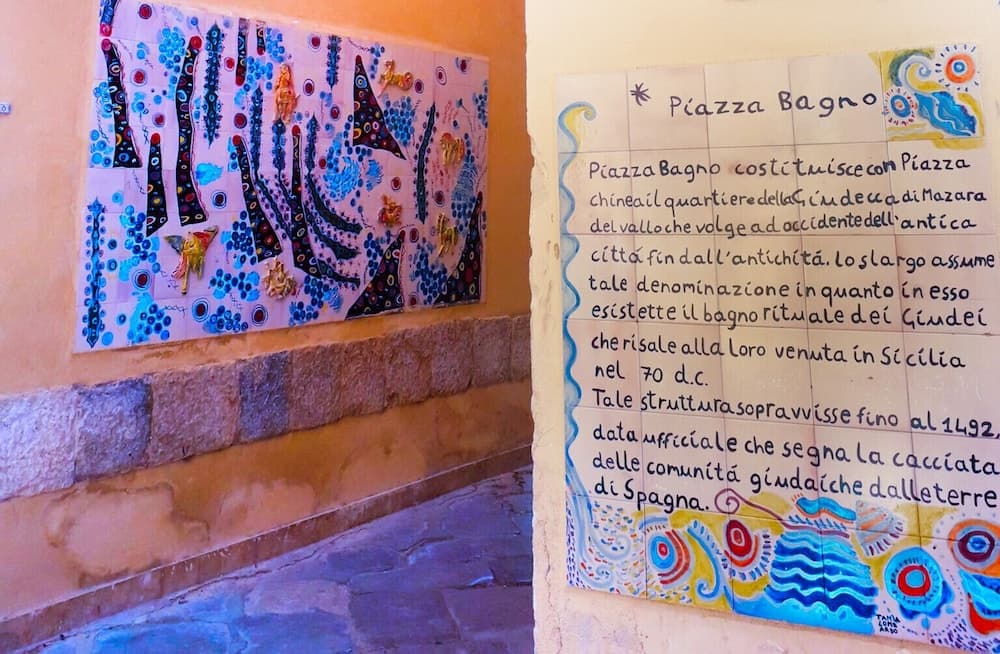 * Piazza Bagno
Piazza Bagno costituisce con Piazza
chinea il quartiere della Giudecca di Mazara
del vallo che volge ad occidente dell'antica
cittá fin dall'antichitá. Lo slargo assume
tale denominazione in quanto in esso
esistette il bagno rituale dei Giudei
che risale alla loro venuta in Sicilia
nel 70 d.c.
Tale struttura sopravvisse fino al 1492,
data ufficiale che segna la cacciata
delle comunitá giudaiche dalle terre
di Spagna.
TANIA
LOMB
ARDO